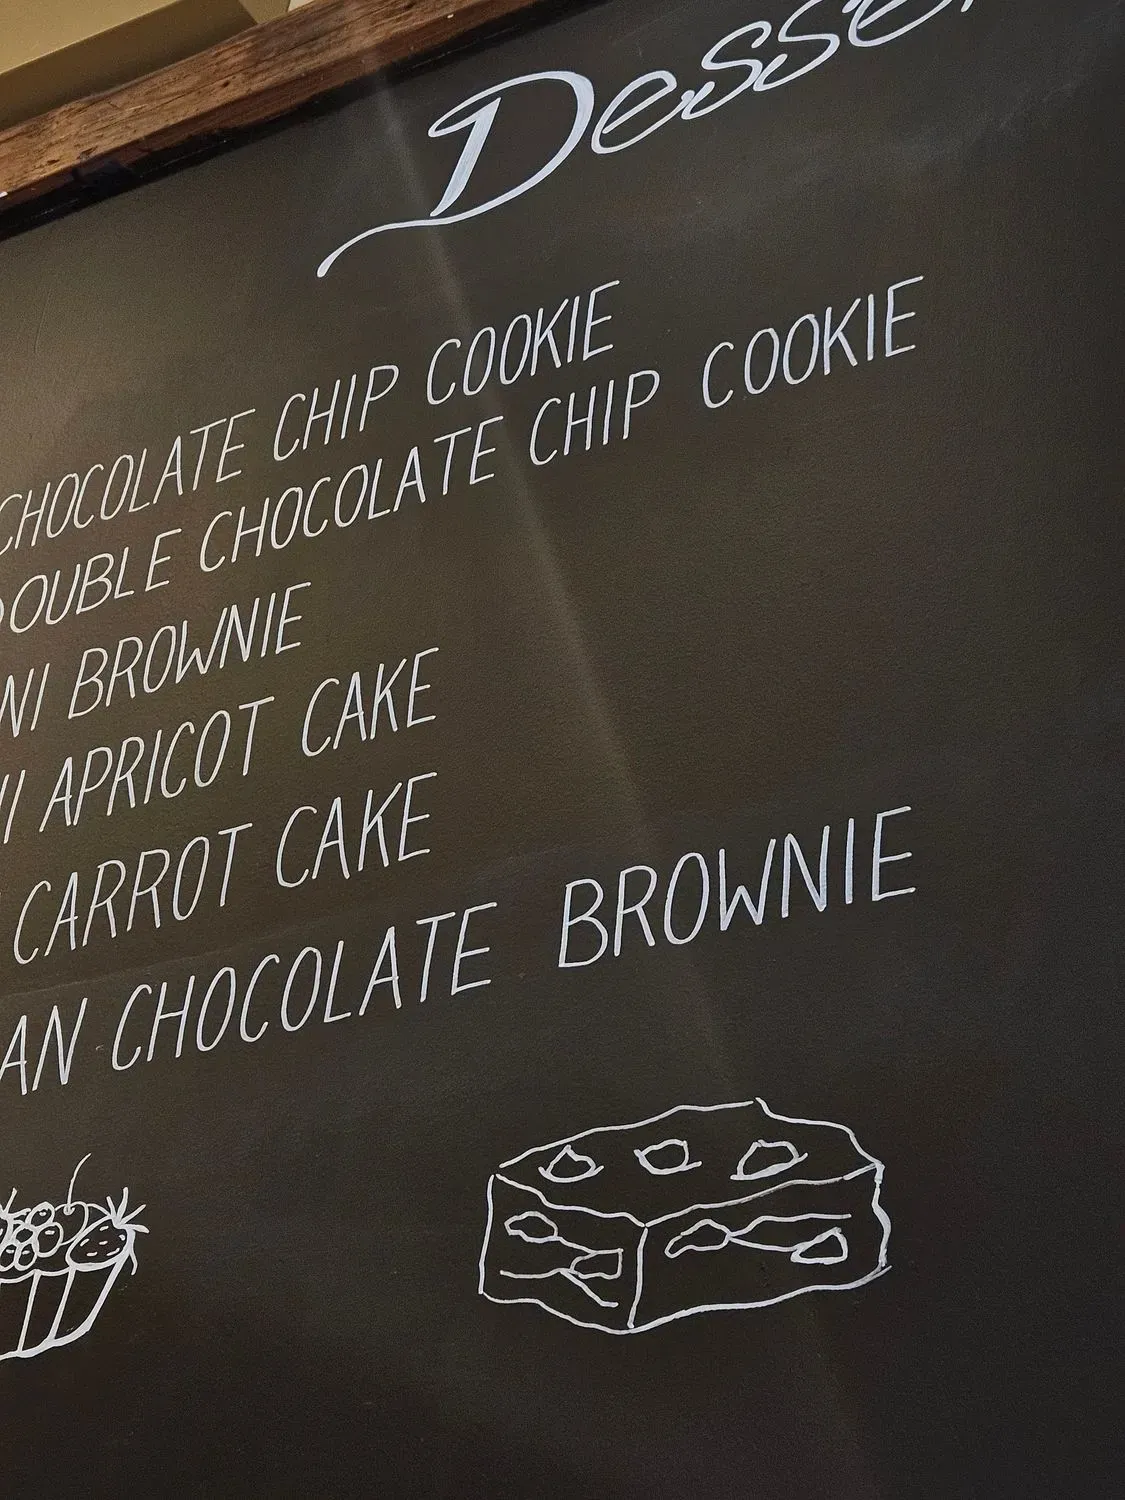 Desse
CHOCOLATE CHIP COOKIE
DOUBLE CHOCOLATE CHIP COOKIE
NI BROWNIE
I APRICOT CAKE
CARROT CAKE
AN CHOCOLATE BROWNIE